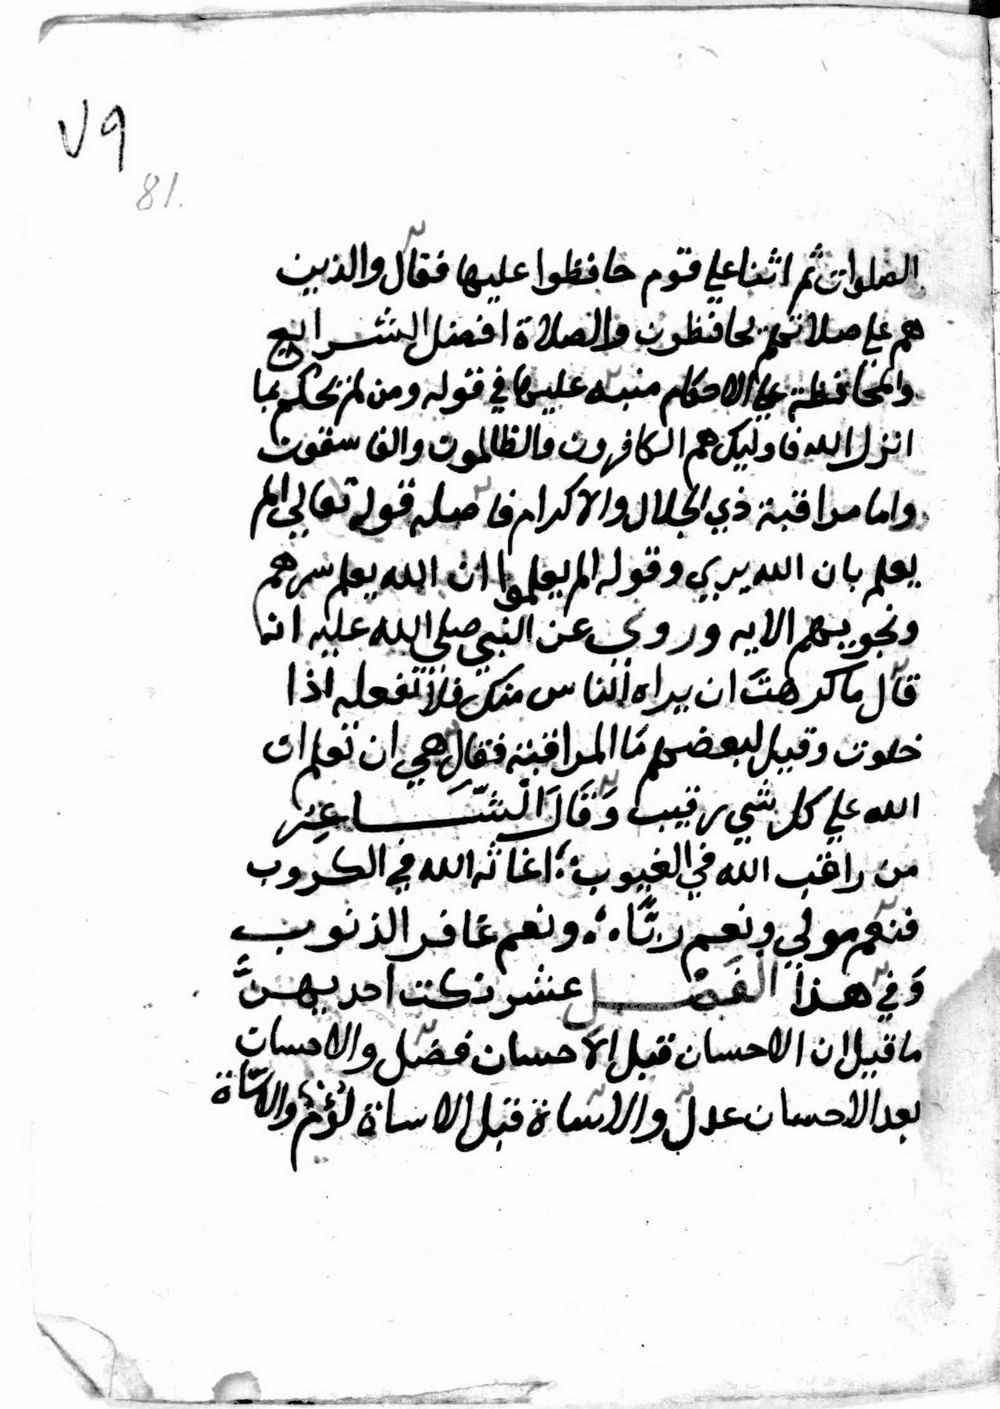 ٧٩
81.
الصلوات ثم اثنا علي قوم حافظوا عليها فقال والذين
هم علي صلاتهم يحافظون والصلاة افضل الشرايع
والمحافظة علي الاحكام منبه عليها في قوله ومن لم يحكم بما
انزل الله فاوليك هم الكافرون والظالمون والفاسقون
واما مراقبة ذي الجلال والاكرام فاصله قوله تعالي الم
يعلم بان الله يري وقوله الم يعلموا ان الله يعلم سرهم
ونجويهم الايه وروي عن النبي صلي الله عليه انه
قال ما كرهت ان يراه الناس منك فلا تفعله اذا
خلوت وقيل لبعضهم ما المراقبة فقال هي ان تعلم ان
الله علي كل شي رقيب وَقَالَ الشَّاعِر
من راقب الله في الغيوب ؛ اغاثه الله في الكروب
فنعم مولي ونعم ربًّا ؛ ونعم غافر الذنوب
وَفي هذا الفَصْل عشر نكت احديهنَّ
ما قيل ان الاحسان قبل الاحسان فضل والاحسان
بعد الاحسان عدل والاساة قبل الاساة لؤم والاساة